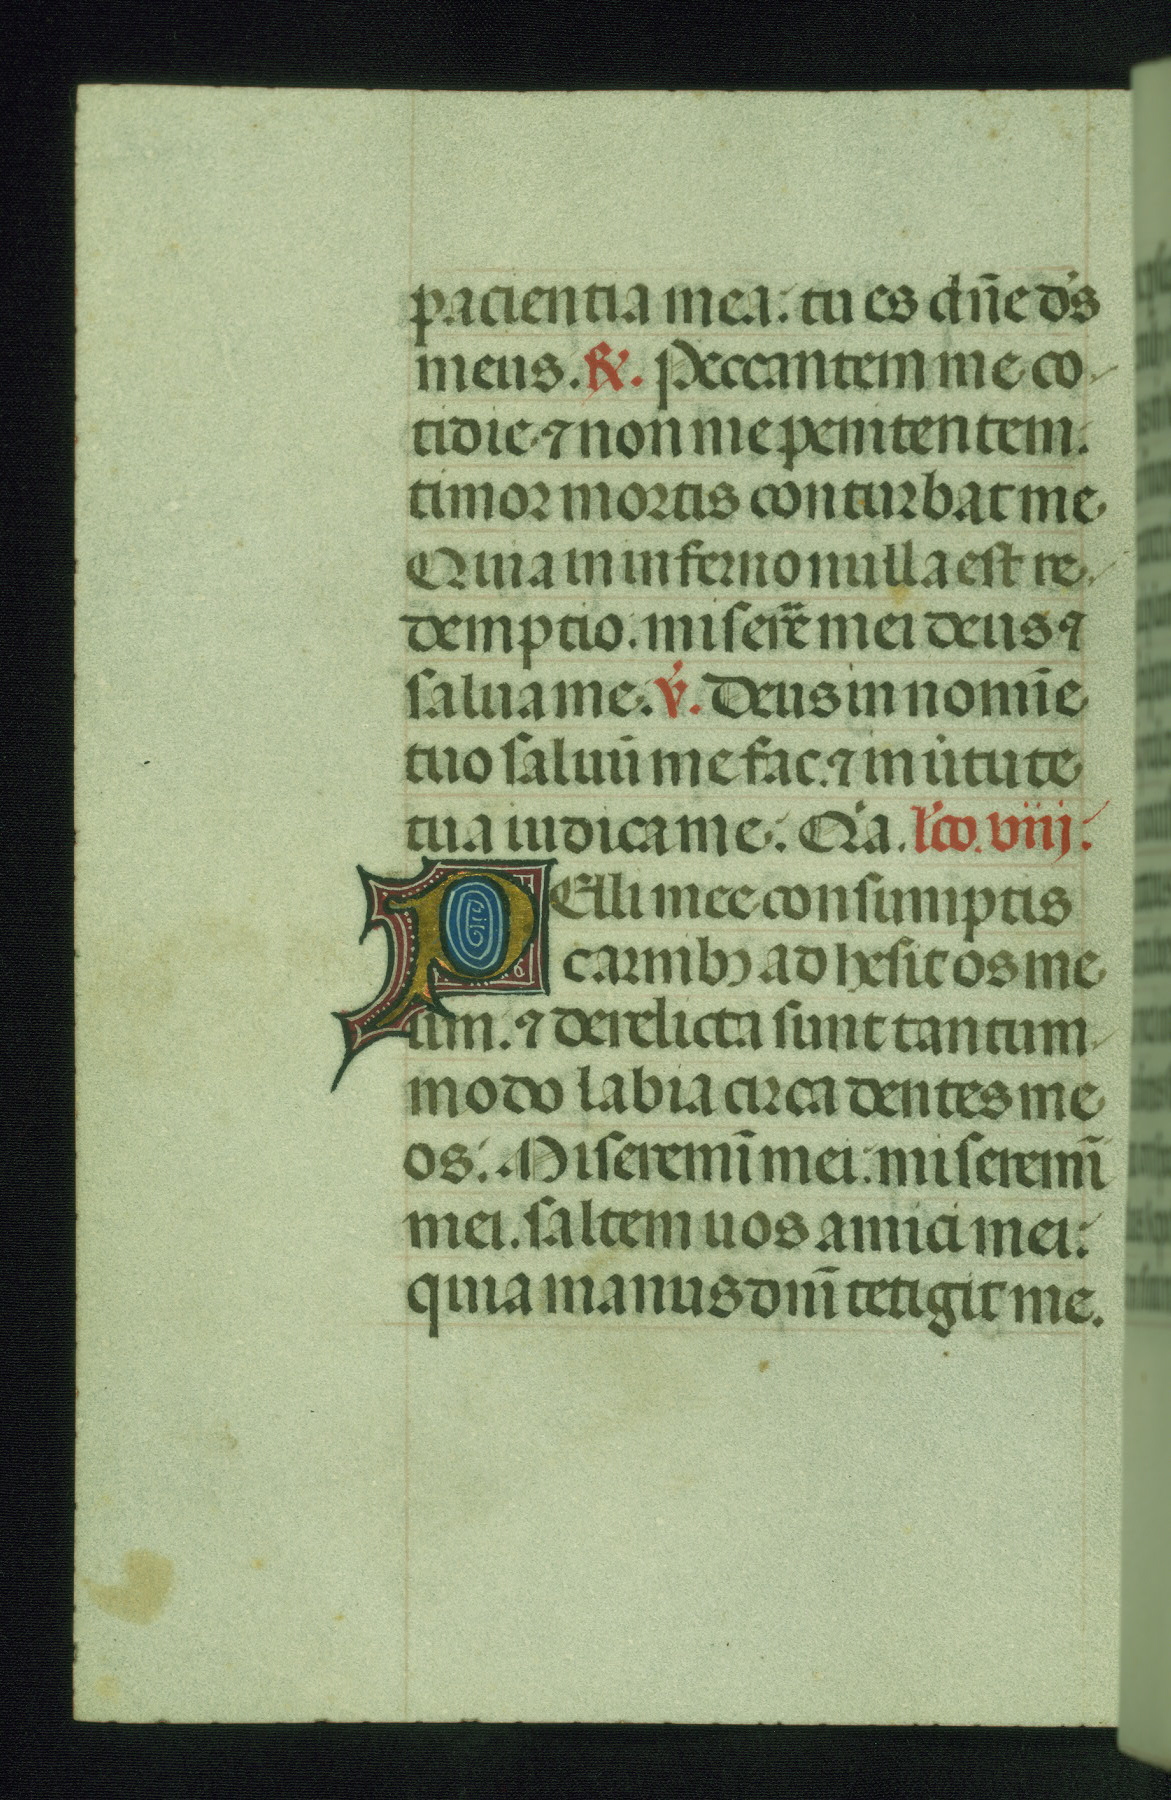 pacientia mea: tu es dñe ds̃
meus. ℟. Peccantem me co-
tidie ⁊ non me penitentem.
timor mortis conturbat me
Quia in inferno nulla est re-
demptio. miserẽ mei deus ⁊
salua me. ℣. Deus in nomĩe
tuo saluũ me fac. ⁊ in ũtute
tua iudica me. Q̃a. lc̃o. viiij.
PElli mee consumptis
carnibꝫ adhesit os me
um. ⁊ derelicta sunt tantum-
modo labia circa dentes me
os. Miseremĩ mei: miseremĩ
mei. saltem uos amici mei:
quia manus dnĩ tetigit me.